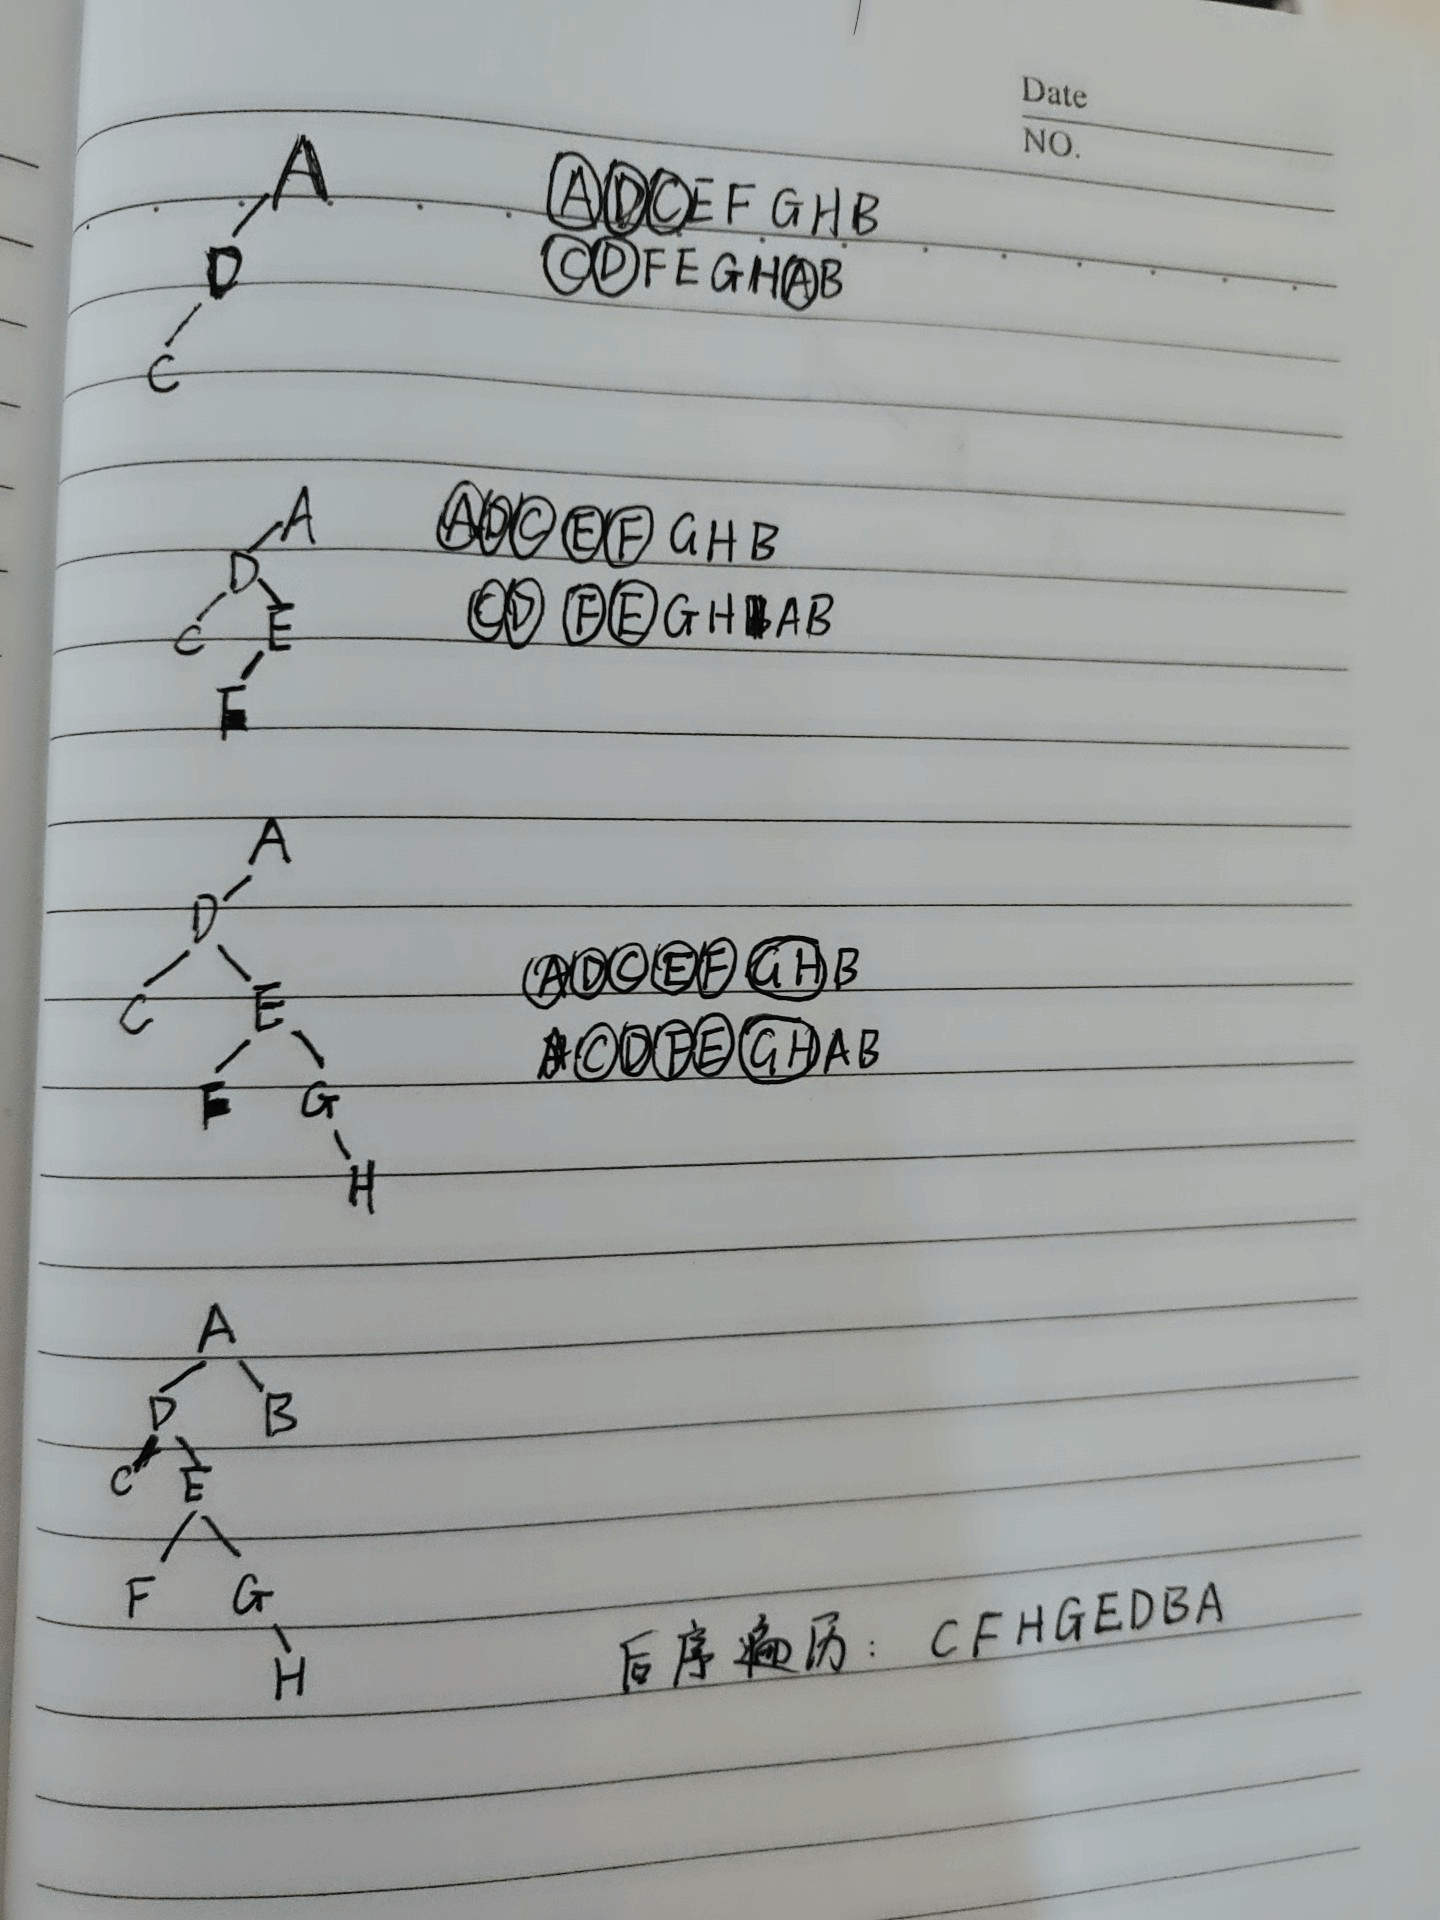 Date
NO.
A
ADCEFGHB
D
CDFEGHAB
C
A
ADCEFGHB
D
C E
CDFEGHAB
F
A
D
ADCEFGHB
C E
CDFEGHAB
F G
H
A
D B
C E
F G
后序遍历：CFHGEDBA
H